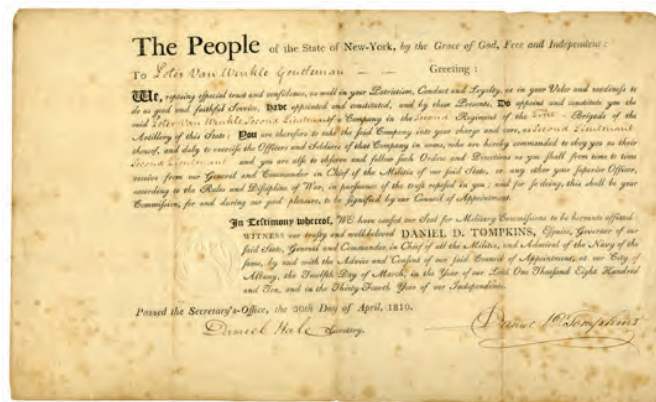 The People of the State of New-York, by the Grace of God, Free and Independent:
To Peter Van Winkle Gentleman — — Greeting:
We, reposing especial trust and confidence, as well in your Patriotism, Conduct and Loyalty, as in your Valor and readiness to
do us good and faithful Service, Have appointed and constituted, and by these Presents, Do appoint and constitute you the
said Peter Van Winkle Second Lieutenant of a Company in the Second Regiment of the First Brigade of the
Artillery of this State: You are therefore to take the said Company into your charge and care, as Second Lieutenant
thereof, and duly to exercise the Officers and Soldiers of that Company in arms, who are hereby commanded to obey you as their
Second Lieutenant and you are also to observe and follow such Orders and Directions as you shall from time to time
receive from our General and Commander in Chief of the Militia of our said State, or any other your Superior Officer,
according to the Rules and Discipline of War, in pursuance of the trust reposed in you; and for so doing, this shall be your
Commission, for and during our good pleasure, to be signified by our Council of Appointment.
In Testimony whereof, WE have caused our Seal for Military Commissions to be hereunto affixed:
WITNESS our trusty and well-beloved DANIEL D. TOMPKINS, Esquire, Governor of our
said State, General and Commander in Chief of all the Militia, and Admiral of the Navy of the
same, by and with the Advice and Consent of our said Council of Appointment, at our City of
Albany, the Twelfth Day of March, in the Year of our Lord One Thousand Eight Hundred
and Ten, and in the Thirty Fourth Year of our Independence.
Passed the Secretary's-Office, the 30th Day of April, 1810.
Daniel Hale Secretary.
Daniel D Tompkins